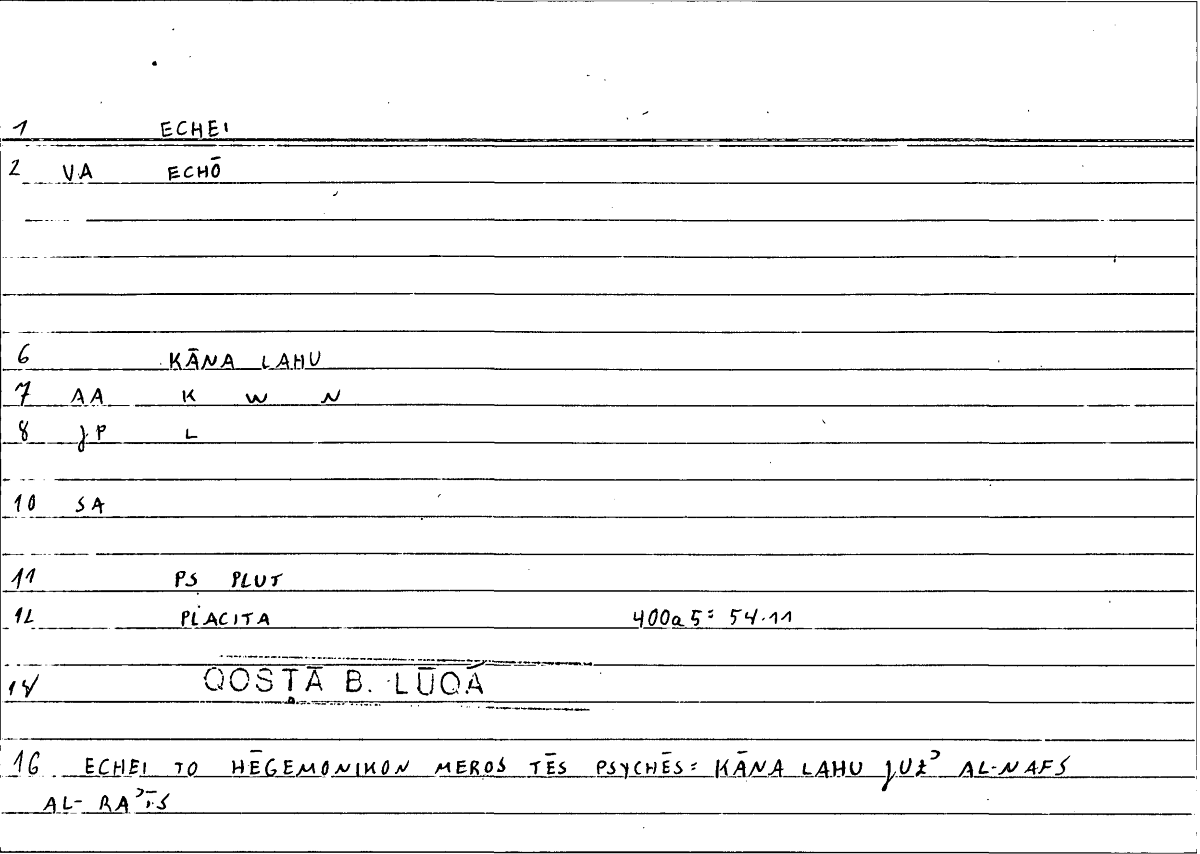 1 ECHEI
2 VA ECHŌ
6 KĀNA LAHU
7 AA K W N
8 JP L
10 SA
11 PS PLUT
12 PLACITA 400a5 = 54.11
14 QOSṬĀ B. LŪQĀ
16 ECHEI TO HĒGEMONIKON MEROS TĒS PSYCHĒS = KĀNA LAHU JUZʾ AL-NAFS
AL-RAʾĪS